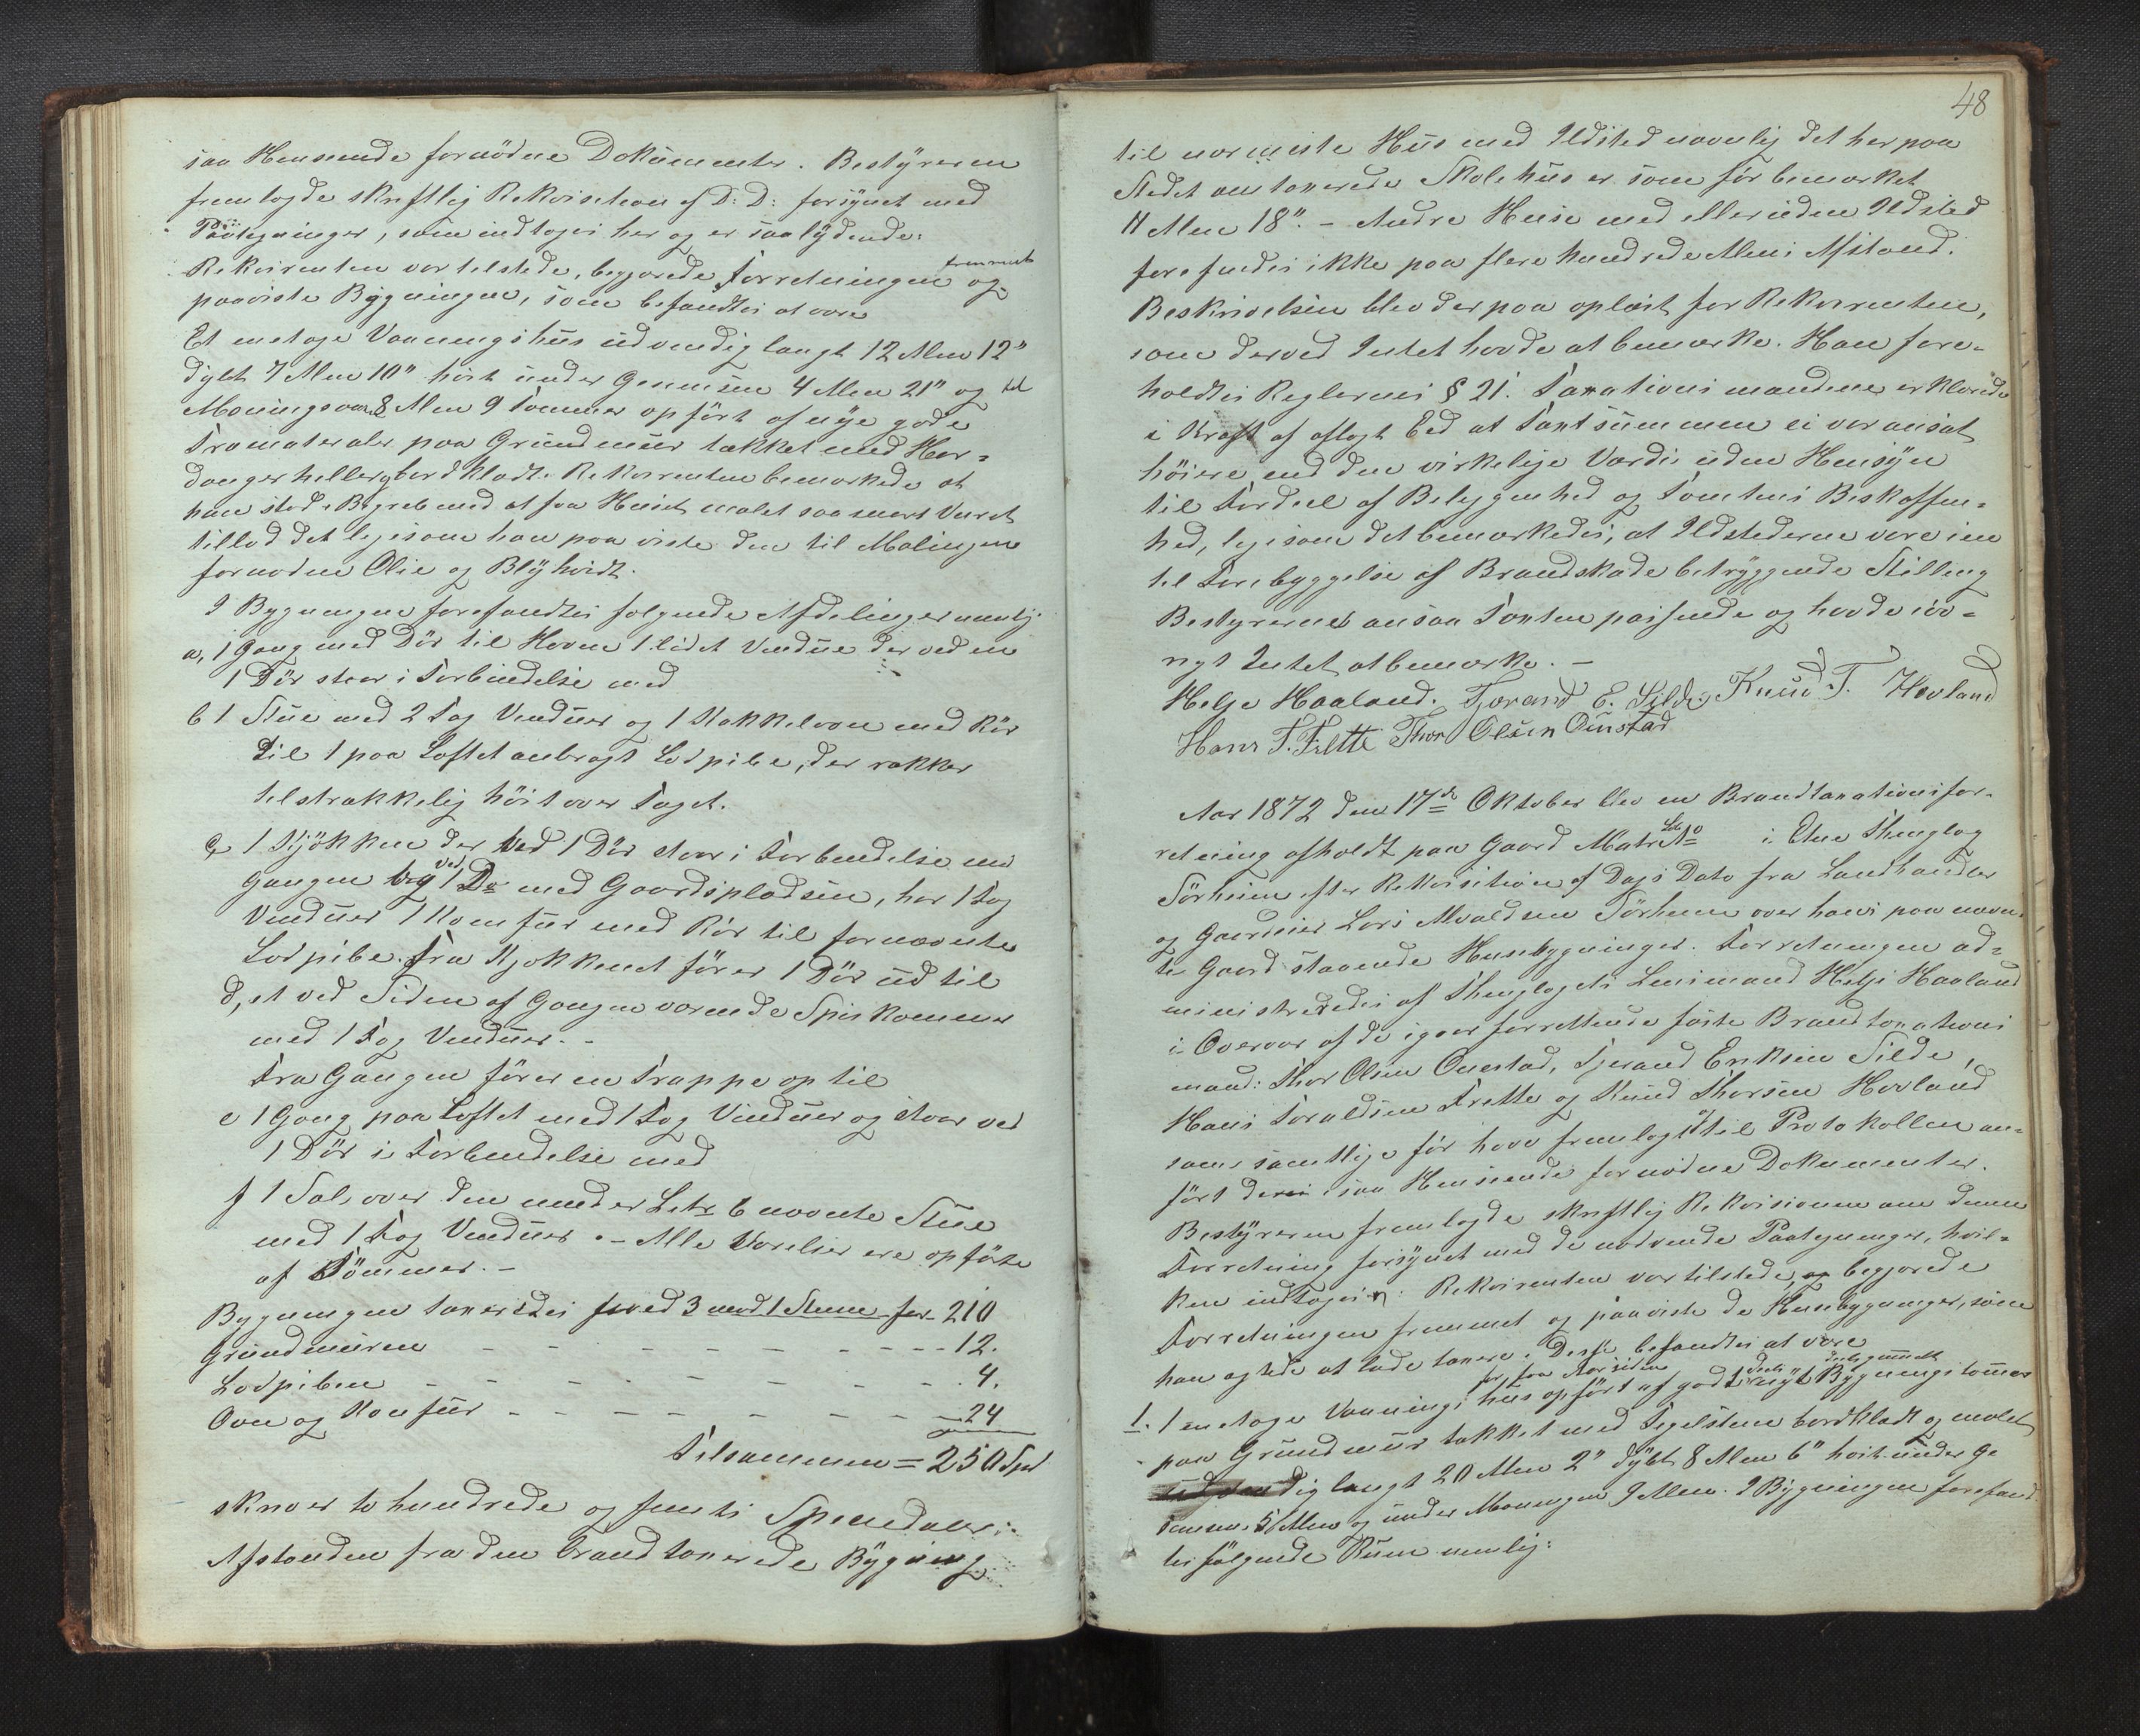 saa Henseende fornödne Dokumenter. Bestyreren
fremlagde skriftlig Rekvisition af D: D: forsynet med
Paategninger, som indtages her og er saalydende:
Rekvirenten var tilstede, begjærede Forretningen fremmet og
paaviste Bygningen, som befandtes at være
Et enetages Vaaningshus udvendig langt 12 Alen 12"
dybt 7 Alen 10" höit under Gesimsen 4 Alen 21" og til
Möningsaasen 8 Alen 9 Tommer opfört af nye gode
Træmaterialer paa Grundmuur tækket med Har=
dangerheller og bordklædt. Rekvirenten bemærkede at
han stod i Begreb med at faa Huset malet saa snart Veiret
tillod det ligesom han paaviste den til Malingen
fornødne Olie og Blyhvidt.
I Bygningen forefandtes følgende Afdelinger nemlig:
a, 1 Gang med Dör til Haven 1 lidet Vindue der ved en
1 Dör staar i Forbindelse med
b 1 Stue med 2 Fag Vinduer og 1 Kakkelovn med Rör
til 1 paa Loftet anbragt Lodpibe, der rækker
tilstrækkelig höit over Taget.
c 1 Kjökken der ved 1 Dör staar i Forbindelse med
Gangen og ved 1 Do med Gaardspladsen, har 1 Fag
Vinduer 1 Komfur med Rör til fornævnte
Lodpibe. Fra Kjøkkenet förer 1 Dör ud til
d, et ved Siden af Gangen værende Spiskammer
med 1 Fag Vinduer. -
Fra Gangen förer en Trappe op til
e 1 Gang paa Loftet med 1 Fag Vinduer og staar ved
1 Dör i Forbindelse med
f 1 Sal over den under Litr b nævnte Stue
med 1 Fag Vinduer. - Alle Værelser ere opförte
af Tömmer. -
Bygningen taxeredes med 3 mod 1 Stemme for - 210
Grundmuren - - - - - - - - 12.
Lodpiben - - - - - - - - 4.
Ovn og Komfur - - - - - - - 24
Tilsammen = 250 Spd
skriver to hundrede og femti Speciedaler:
Afstanden fra den brandtaxerede Bygning
48
til nærmeste Hus med Ildsted navnlig det her paa
Stedet omtaxerede Skolehus er som för bemærket
11 Alen 18". - Andre Huse med eller uden Ildsted
forefindes ikke paa flere hundrede Alens Afstand.
Beskrivelsen blev derpaa oplæst for Rekvirenten,
som derved Intet havde at bemærke. Han fore=
holdtes Reglernes § 21. Taxationsmændene erklærede
i Kraft af aflagt Eed at Taxtsummen ei var ansat
höiere end den virkelige Værdi uden Hensyn
til Fordeel af Beliggenhed og Tomtens Beskaffen=
hed, ligesom det bemærkedes, at Ildstederne vare i en
til Forebyggelse af Brandskade betryggende Stilling
Bestyreren ansaa Taxten passende og havde iöv=
rigt Intet at bemærke. -
Helge Haaland. Tjerand E. Silde, Knud T. Hovland
Hans T. Frette Thor Olsen Ounstad
Aar 1872 den 17de Oktober blev en Brandtaxationsfor=
retning afholdt paa Gaard Matr Lb No i Etne Thinglag
Sörheim efter Rekvisition af Dags Dato fra Landhandler
og Gaardeier Lars Sörheim over hans paa nævn=
te Gaard staaende Husebygninger. Forretningen ad=
ministreredes af Thinglagets Lensmand Helge Haaland
i Overvær af de igaar forrettende faste Brandtaxations
mænd: Thor Olsen Ounstad, Tjerand Eriksen Silde,
Hans Toraldsen Frette og Knud Thorsen Hovland
som samtlige för have fremlagt og til Protokollen an=
fört de i saa Henseende fornödne Dokumenter.
Bestyreren fremlagde skriftlig Rekvisition om denne
Forretning forsynet med de nødvende Paategninger, hvil=
ken indtages: Rekvirenten var tilstede, og begjærede
Forretningen fremmet og paaviste de Husebygninger, som
han agtede at lade taxere. Disse befandtes at være
1. 1 enetages Vaaningshus for faa Aar siden opfört af godt deels nyt deels gammelt Bygningstömmer
paa Grundmuur tækket med Tegelsteen bordklædt og malet
udvendig langt 20 Alen 2" dybt 8 Alen 6" höit under Ge
simsen 5 Alen og under Möningen 9 Alen. I Bygningen forefand
tes følgende Rum nemlig: